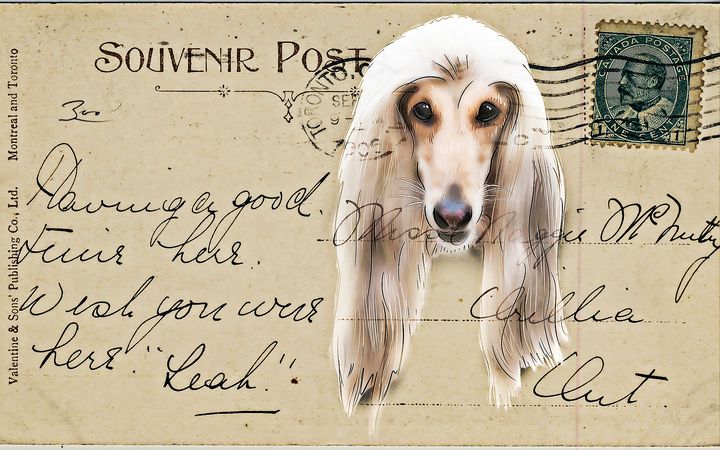 SOUVENIR POST
CANADA POSTAGE
ONE CENT
TORONTO
SEP
1905
300
Having a good
time here.
Wish you were
here." "Leah."
Miss Maggie McNulty
Orillia
Ont
Valentine & Sons' Publishing Co., Ltd. Montreal and Toronto